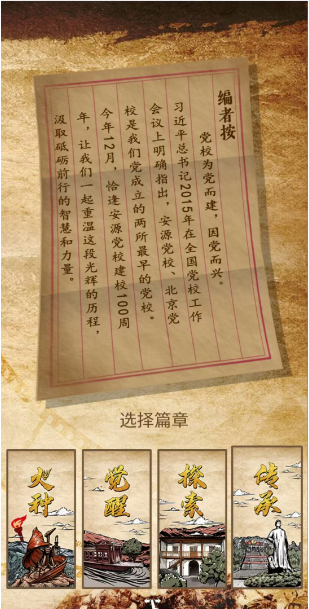 编者按
党校为党而建，因党而兴。
习近平总书记2015年在全国党校工作
会议上明确指出，安源党校、北京党
校是我们党成立的两所最早的党校。
今年12月，恰逢安源党校建校100周
年，让我们一起重温这段光辉的历程，
汲取砥砺前行的智慧和力量。
选择篇章
火种
觉醒
探索
传承